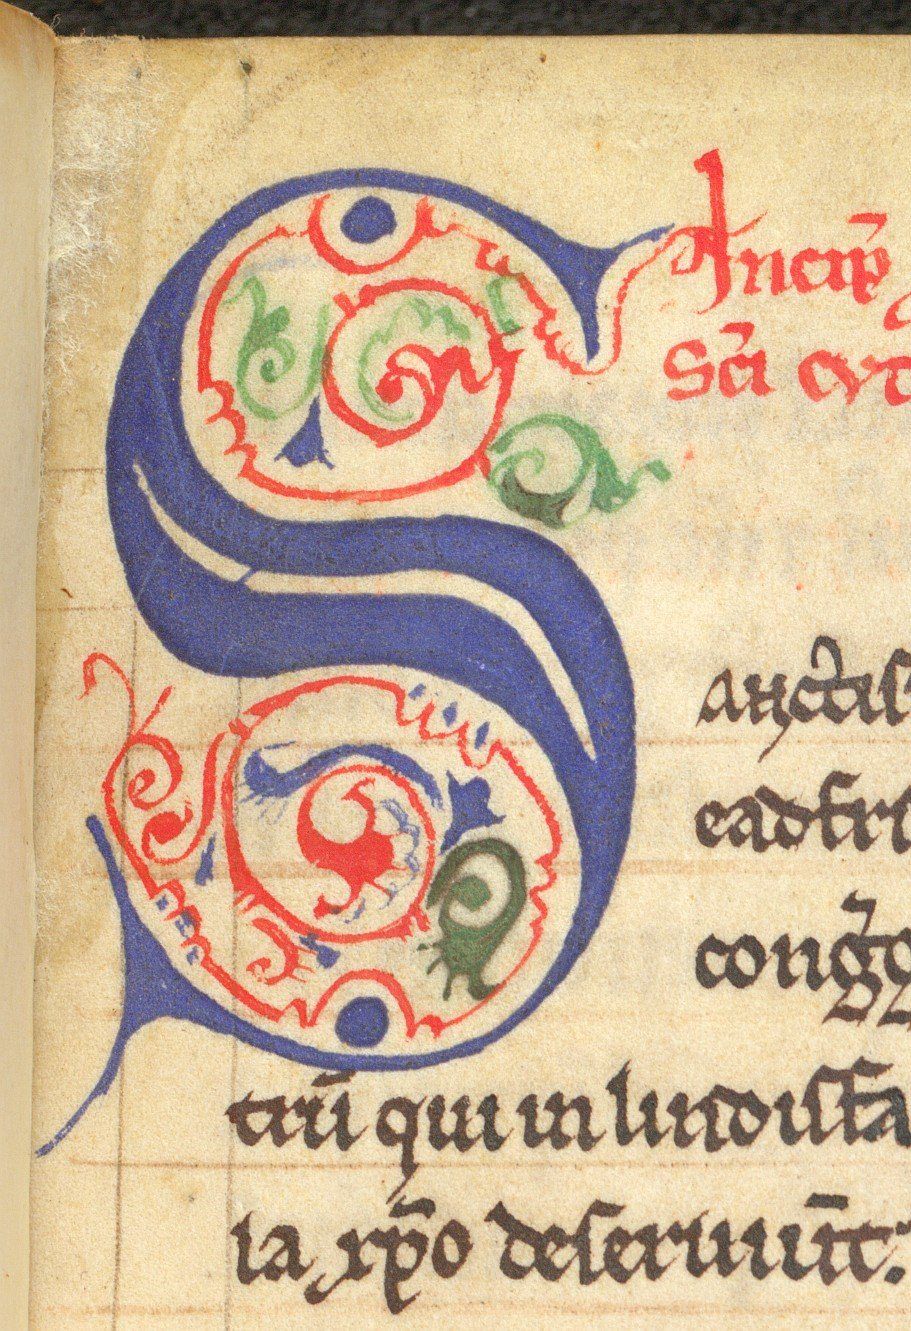 Incip̄
Sc̄i cvt
S
anc̄tis
eadfri
congg̅
trū qui in lindisfa
ia xp̄o deseruiūt.